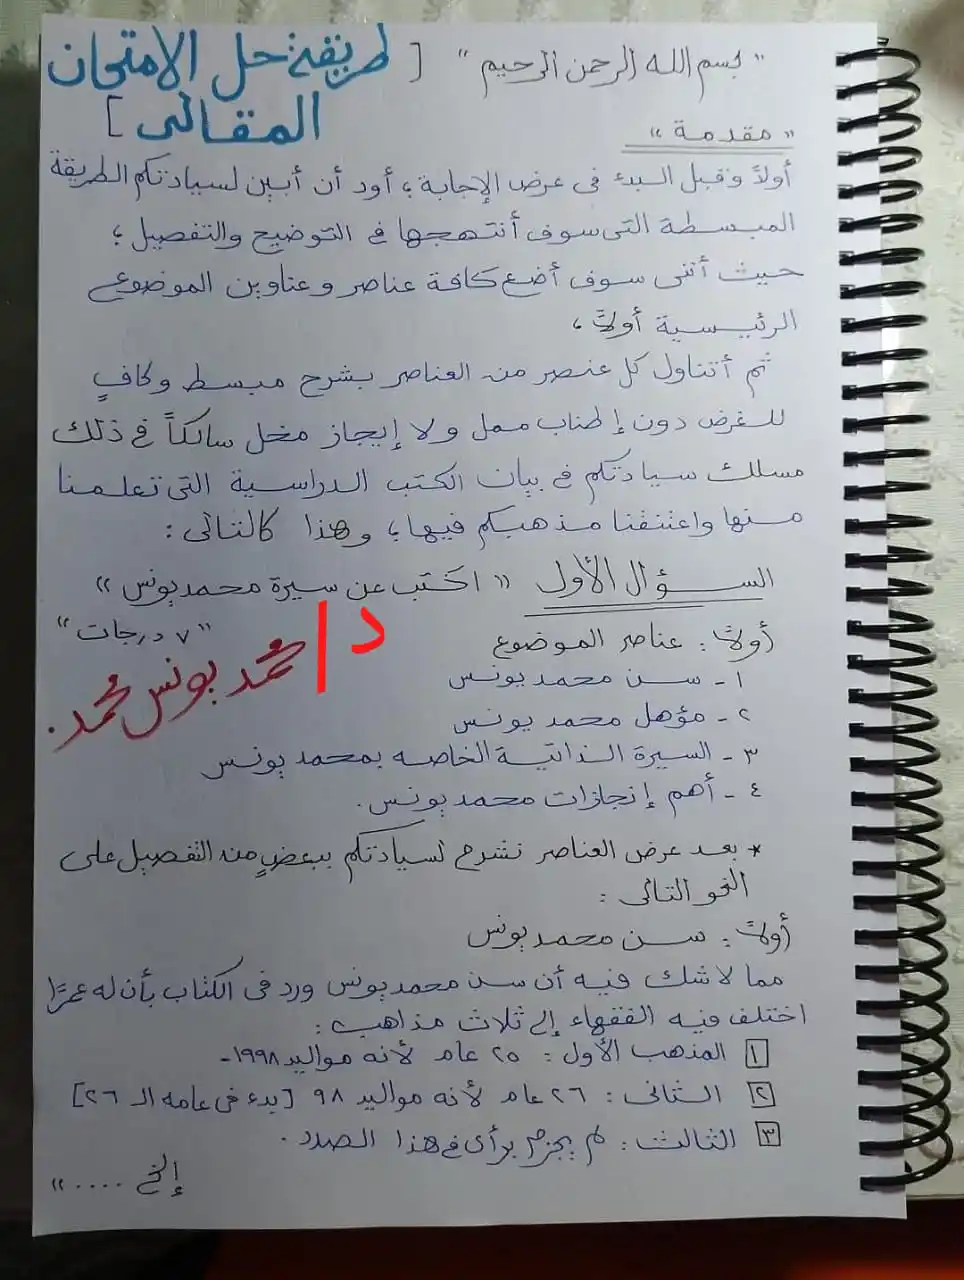 "بسم الله الرحمن الرحيم"
[طريقة حل الامتحان
المقالى]
"مقدمة"
أولاً وقبل البدء فى عرض الإجابة؛ أود أن أبين لسيادتكم الطريقة
المبسطة التى سوف أنتهجها فى التوضيح والتفصيل؛
حيث أننى سوف أضع كافة عناصر وعناوين الموضوع
الرئيسية أولاً،
ثم أتناول كل عنصر من العناصر بشرح مبسط وكافٍ
للغرض دون إطناب ممل ولا إيجاز مخل سالكاً فى ذلك
مسلك سيادتكم فى بيان الكتب الدراسية التى تعلمنا
منها واعتنقنا مذهبكم فيها؛ وهذا كالتالى:
السؤال الأول "اكتب عن سيرة محمد يونس"
"٧ درجات"
د/ محمد يونس محمد.
أولاً: عناصر الموضوع
١- سن محمد يونس
٢- مؤهل محمد يونس
٣- السيرة الذاتية الخاصه بمحمد يونس
٤- أهم إنجازات محمد يونس.
* بعد عرض العناصر نشرح لسيادتكم ببعضٍ من التفصيل على
النحو التالى:
أولاً: سن محمد يونس
مما لا شك فيه أن سن محمد يونس ورد فى الكتاب بأن له عمرًا
اختلف فيه الفقهاء إلى ثلاث مذاهب:
١ المذهب الأول: ٢٥ عام لأنه مواليد ١٩٩٨-
٢ الثانى: ٢٦ عام لأنه مواليد ٩٨ [بدء فى عامه الـ ٢٦]
٣ الثالث: لم يجزم برأى فى هذا الصدد.
إلخ ...."